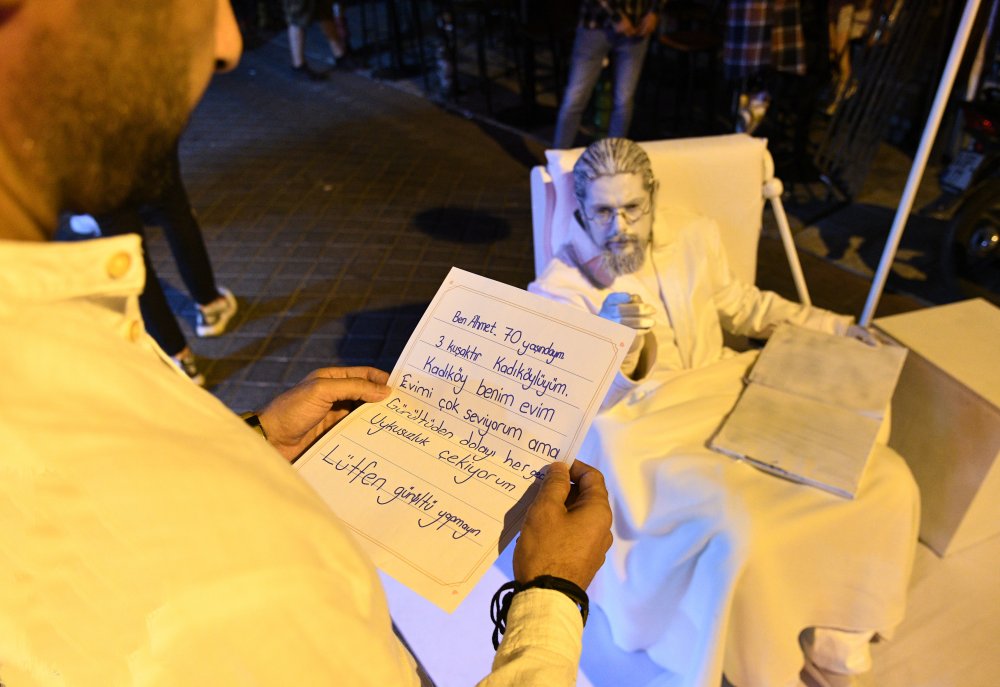 Ben Ahmet. 70 yaşındayım
3 kuşaktır Kadıköylüyüm.
Kadıköy benim evim
Evimi çok seviyorum ama
Gürültüden dolayı her gec
Uykusuzluk çekiyorum
Lütfen gürültü yapmayın